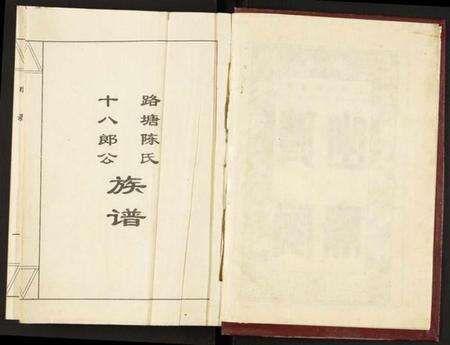 路塘陈氏
十八郎公
族谱